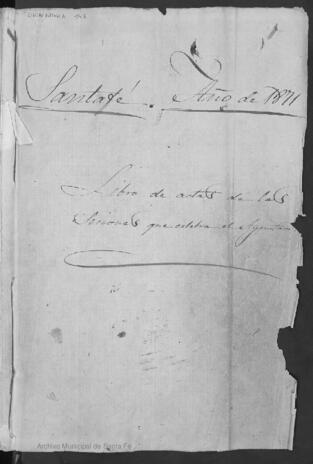 Santafé. Año de 1871
Libro de actas de las
Sesiones que celebra el Ayuntam
Archivo Municipal de Santa Fe